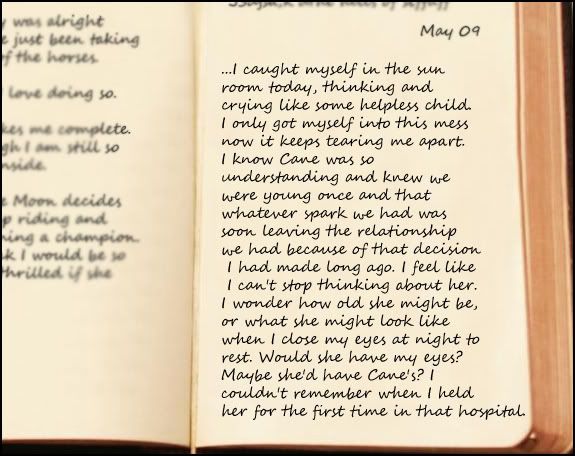 y was alright
e just been taking
of the horses.
love doing so.
kes me complete.
gh I am still so
nside.
e Moon decides
p riding and
ning a champion.
k I would be so
thrilled if she
May 09
...I caught myself in the sun
room today, thinking and
crying like some helpless child.
I only got myself into this mess
now it keeps tearing me apart.
I know Cane was so
understanding and knew we
were young once and that
whatever spark we had was
soon leaving the relationship
we had because of that decision
I had made long ago. I feel like
I can't stop thinking about her.
I wonder how old she might be,
or what she might look like
when I close my eyes at night to
rest. Would she have my eyes?
Maybe she'd have Cane's? I
couldn't remember when I held
her for the first time in that hospital.